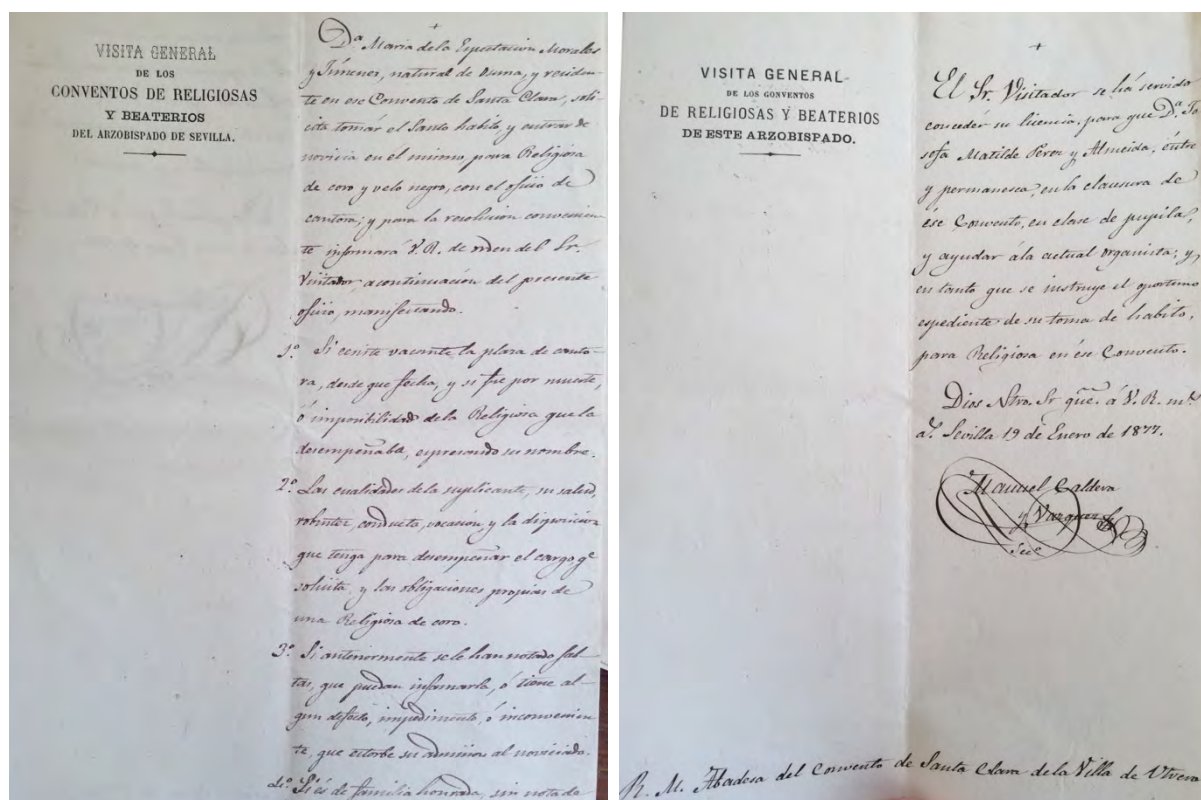 VISITA GENERAL
DE LOS
CONVENTOS DE RELIGIOSAS
Y BEATERIOS
DEL ARZOBISPADO DE SEVILLA.
+
Dª Maria de la Espectacion Morales
y Jimenez, natural de Osuna, y residen-
te en ese Convento de Santa Clara, soli-
cita tomar el Santo habito, y entrar de
novicia en el mismo para Religiosa
de coro y velo negro, con el oficio de
cantora; y para la resolucion convenien
te informará V.R. de orden del Sr.
Visitador, a continuacion del presente
oficio, manifestando.
1º Si existe vacante la plaza de canto-
ra, desde que fecha, y si fue por muerte,
ó imposibilidad de la Religiosa que la
desempeñaba, espresando su nombre.
2º Las cualidades de la suplicante, su salud,
robustez, conducta, vocacion, y la disposicion
que tenga para desempeñar el cargo qº
solicita, y las obligaciones propias de
una Religiosa de coro.
3º Si anteriormente se le han notado fal-
tas, que puedan infamarla, ó tiene al-
gun defecto, impedimento, ó inconvenien
te, que estorbe su admision al noviciado.
4º Si és de familia honrada, sin nota de
VISITA GENERAL
DE LOS CONVENTOS
DE RELIGIOSAS Y BEATERIOS
DE ESTE ARZOBISPADO.
+
El Sr. Visitador se há servido
conceder su licencia, para que Dª Jo
sefa Matilde Perez y Almeida, entre
y permanesca, en la clausura de
ése Convento, en clase de pupila,
y ayudar ála actual organista; y,
en tanto que se instruye el oportuno
espediente de su toma de habito,
para Religiosa en ése Convento.
Dios Ntro. Sr gue. á V.R. ms
as. Sevilla 19 de Enero de 1877.
Manuel Caldera
y Vazquez
Secº
R. M. Abadesa del Convento de Santa Clara de la Villa de Utrera